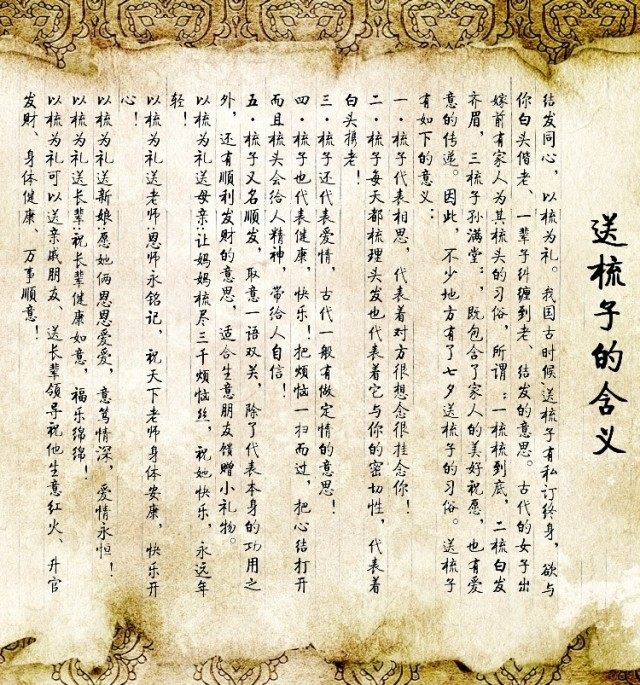 送梳子的含义
结发同心，以梳为礼。我国古时候，送梳子有私订终身，欲与
你白头偕老、一辈子纠缠到老、结发的意思。古代的女子出
嫁前有家人为其梳头的习俗，所谓：一梳梳到底，二梳白发
齐眉，三梳子孙满堂：，既包含了家人的美好祝愿，也有爱
意的传递。因此，不少地方有了七夕送梳子的习俗。送梳子
有如下的意义：
一．梳子代表相思，代表着对方很想念很挂念你！
二．梳子每天都梳理头发也代表着它与你的密切性，代表着
白头携老！
三．梳子还代表爱情，古代一般有做定情的意思！
四．梳子也代表健康，快乐！把烦恼一扫而过，把心结打开
而且梳头会给人精神，带给人自信！
五．梳子又名顺发，取意一语双关，除了代表本身的功用之
外，还有顺利发财的意思，适合生意朋友馈赠小礼物。
以梳为礼送母亲：让妈妈梳尽三千烦恼丝，祝她快乐，永远年
轻！
以梳为礼送老师：恩师永铭记，祝天下老师身体安康，快乐开
心！
以梳为礼送新娘：愿她俩恩恩爱爱，意笃情深，爱情永恒！
以梳为礼送长辈：祝长辈健康如意，福乐绵绵！
以梳为礼可以送亲戚朋友、送长辈领导祝他生意红火、升官
发财、身体健康、万事顺意！